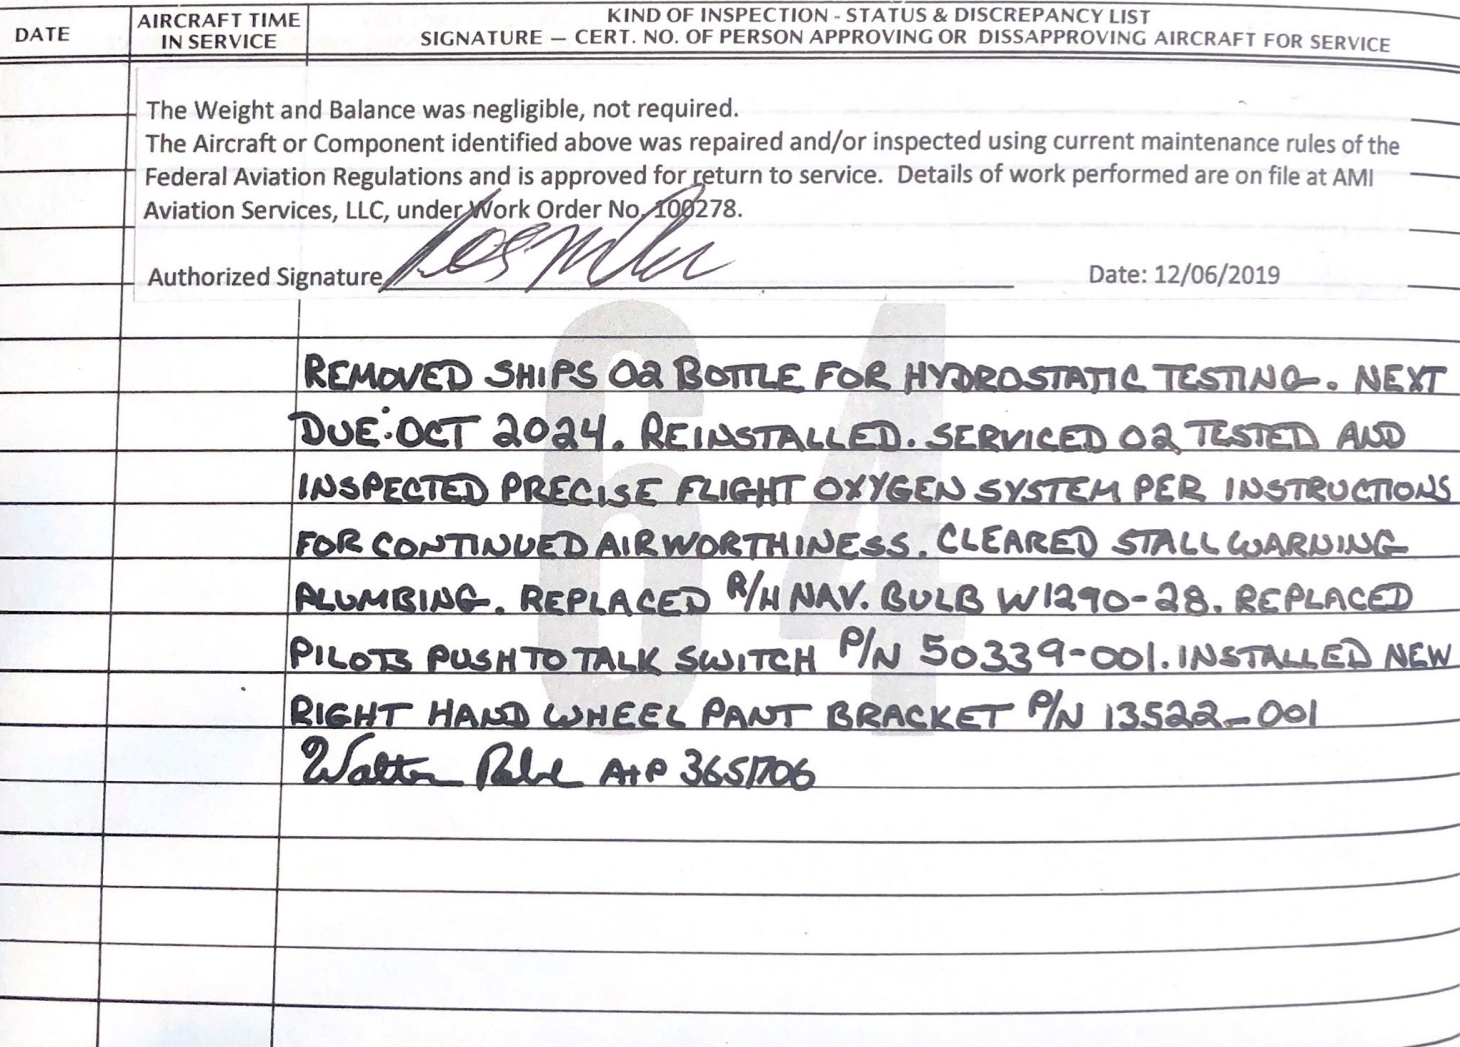 DATE
AIRCRAFT TIME
IN SERVICE
KIND OF INSPECTION - STATUS & DISCREPANCY LIST
SIGNATURE — CERT. NO. OF PERSON APPROVING OR DISSAPPROVING AIRCRAFT FOR SERVICE
The Weight and Balance was negligible, not required.
The Aircraft or Component identified above was repaired and/or inspected using current maintenance rules of the
Federal Aviation Regulations and is approved for return to service. Details of work performed are on file at AMI
Aviation Services, LLC, under Work Order No. 100278.
Authorized Signature
Date: 12/06/2019
64
REMOVED SHIPS O2 BOTTLE FOR HYDROSTATIC TESTING. NEXT
DUE: OCT 2024. REINSTALLED. SERVICED O2 TESTED AND
INSPECTED PRECISE FLIGHT OXYGEN SYSTEM PER INSTRUCTIONS
FOR CONTINUED AIRWORTHINESS. CLEARED STALL WARNING
PLUMBING. REPLACED R/H NAV. BULB W1290-28. REPLACED
PILOTS PUSH TO TALK SWITCH P/N 50339-001. INSTALLED NEW
RIGHT HAND WHEEL PANT BRACKET P/N 13522-001
Walter A+P 3651706